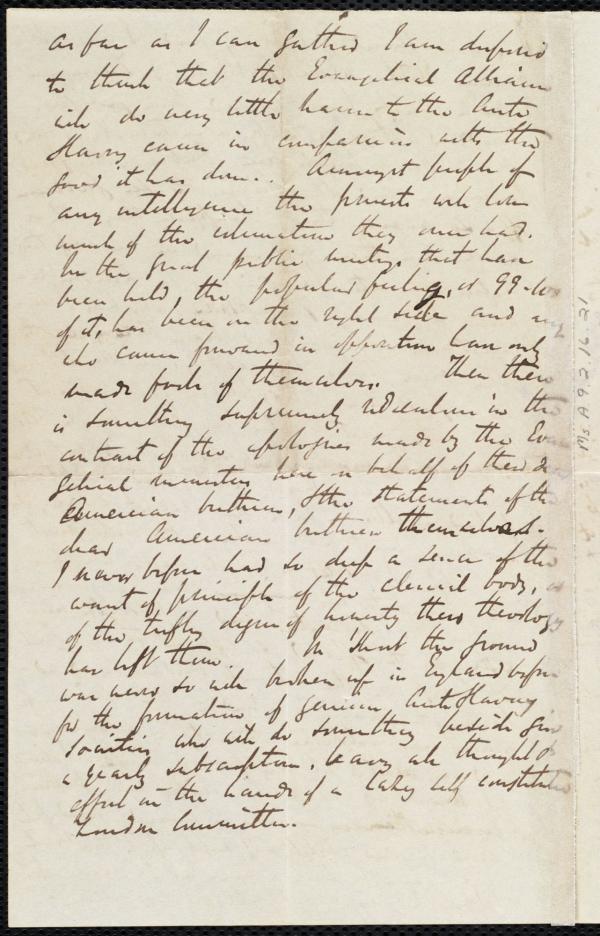 as far as I can gather I am disposed
to think that the Evangelical Alliance
will do very little harm to the Anti
Slavery cause in comparison with the
good it has done. Amongst people of
any intelligence the priests will lose
much of the veneration they once had.
In the great public meetings that have
been held, the popular feeling, or 99-100
of it, has been on the right side and any
who came forward in opposition have only
made fools of themselves. Then there
is something supremely ridiculous in the
contrast of the apologies made by the Evan
gelical ministers here on behalf of their dear
American brethren, & the statements of the
dear American brethren themselves.
I never before had so deep a sense of the
want of principle of the clerical body, or
of the trifling degree of honesty their theology
has left them. In short the ground
was never so well broken up in England before
for the formation of genuine Anti Slavery
Societies who will do something beside give
a yearly subscription, leaving all thought &
effort in the hands of a lazy self constituted
London Committee.
Ms A 9.2.16.21